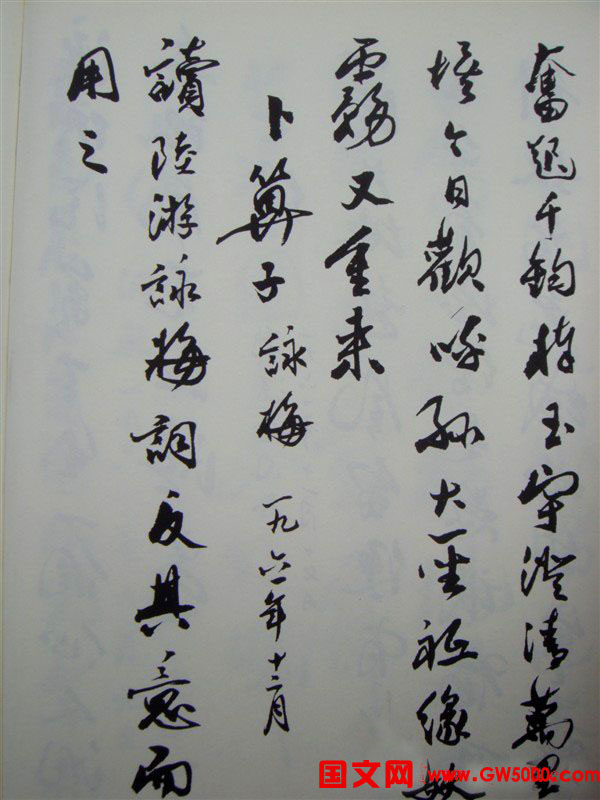 奮起千鈞棒玉宇澄清萬里
埃今日歡呼孫大聖祗緣妖
霧又重来
卜算子 詠梅 一九六一年十二月
讀陸游詠梅詞反其意而
用之
国文网 www.GW5000.com